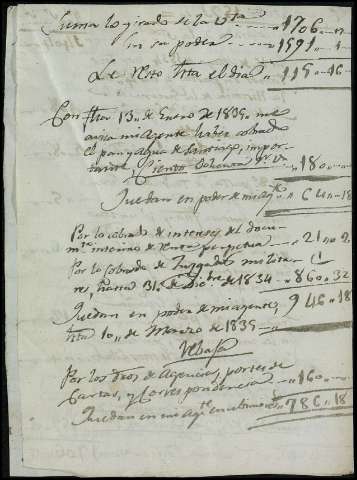 Suma lo girado de la vta 1706
en su poder 1591
Le resto hta el dia 115 16
Con fha 13,, de Enero de 1835,, me
avisa mi Agente haber cobrado
el pan y agua de Santiago, impor-
tante, Ciento Ochenta rs. vn 180
Quedan en poder de mi agte
Por lo cobrado de intereses del docu-
mto interino de renta perpetua 21
Por lo cobrado de Juzgados milita-
res, hasta 31,, de Dice. de 1834 860 32
Quedan en poder de mi agente, 946 18
hta 10,, de Marzo de 1835
Rebaja
Por los dros de Agencia, portes de
Cartas, y Correspondencia 160
Quedan en mi Agte 786 18